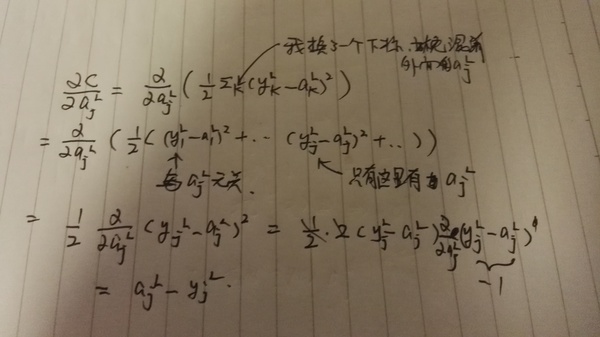 我换了一个下标,避免混淆
外面的a_j^L
∂C/∂a_j^L = ∂/∂a_j^L ( 1/2 Σ_K (y_K^L - a_K^L)^2 )
= ∂/∂a_j^L ( 1/2 ( (y_1^L - a_1^L)^2 + .. (y_j^L - a_j^L)^2 + .. ) )
与 a_j^L 无关. 只有这里有 a_j^L
= 1/2 ∂/∂a_j^L (y_j^L - a_j^L)^2 = 1/2 · 2 (y_j^L - a_j^L) ∂/∂a_j^L (y_j^L - a_j^L)
-1
= a_j^L - y_j^L.